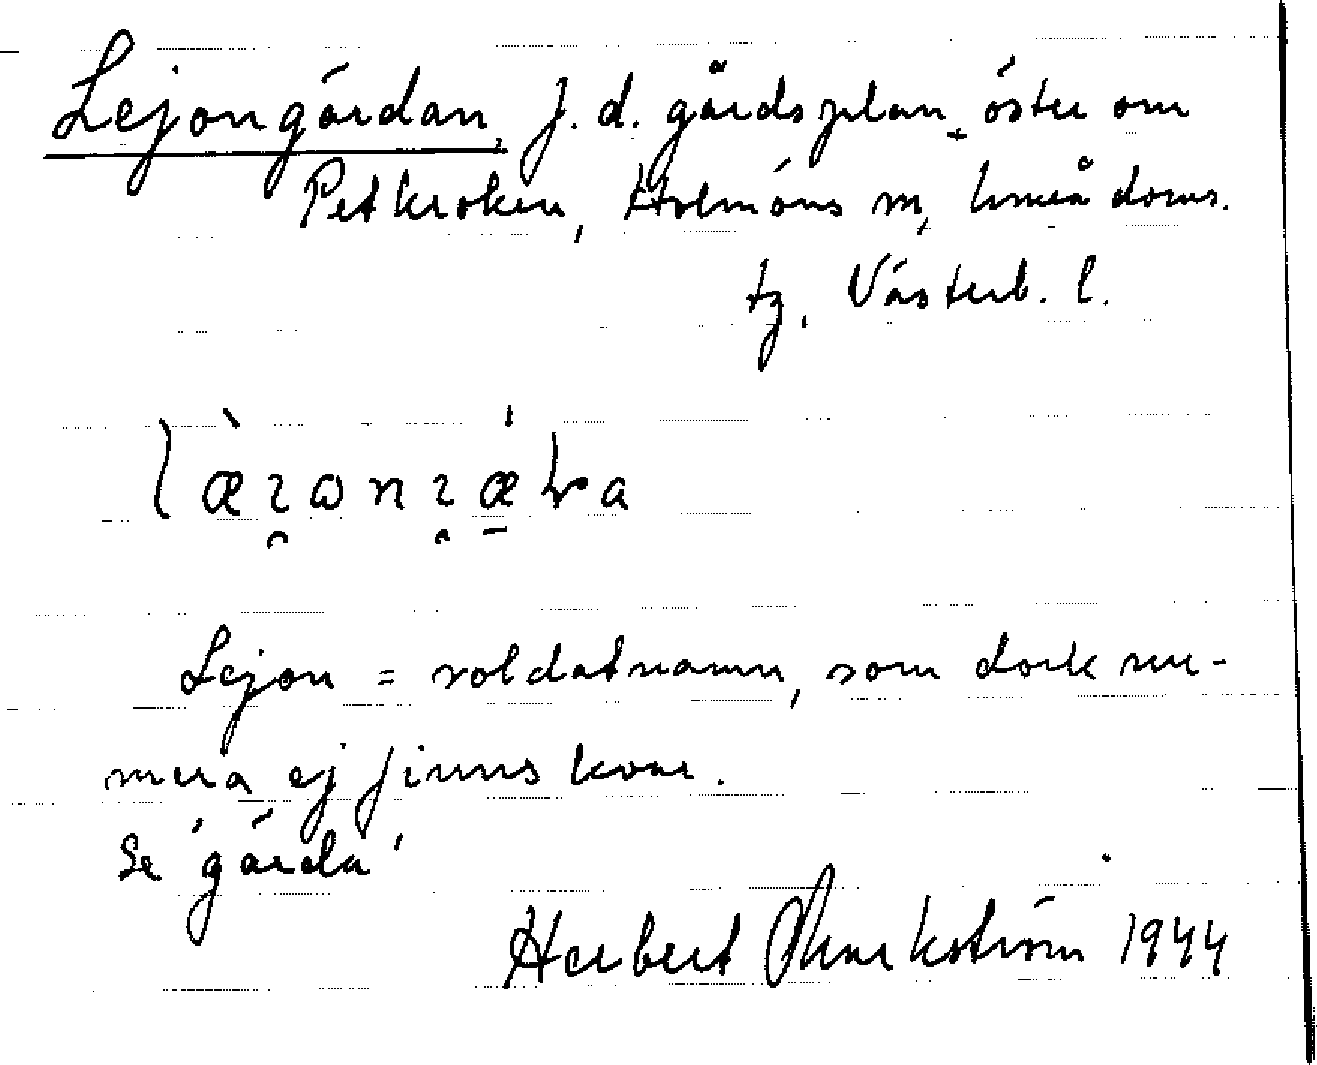 Lejongärdan, f. d. gårdsplan öster om
Petkroken, Holmöns sn, Umeå doms.
tg, Västerb. l.
Lejon = soldatnamn, som dock nu-
mera ej finns kvar.
Se 'gärda'
Herbert Markström 1944